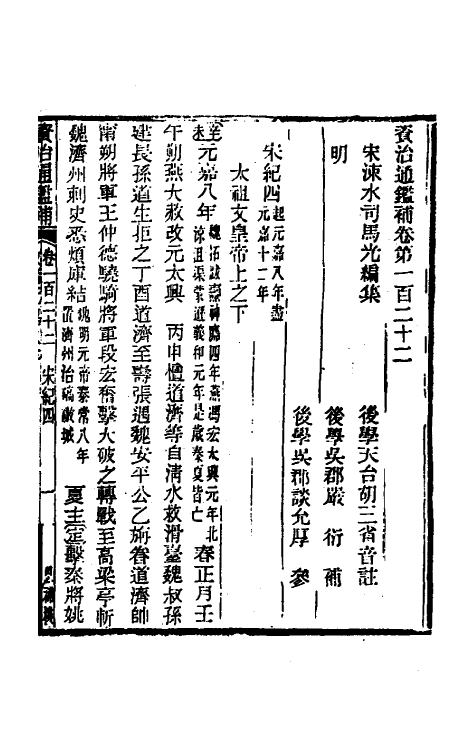 資治通鑑補卷第一百二十二
宋涑水司馬光編集
後學天台胡三省音註
明
後學吳郡嚴衍補
後學吳郡談允厚參
宋紀四
起元嘉八年盡
元嘉十二年
太祖文皇帝上之下
元嘉八年
魏拓跋燾神䴥四年燕馮宏太興元年北
涼沮渠蒙遜義和元年是歲秦夏皆亡
春正月壬
午朔燕大赦改元太興 丙申檀道濟等自清水救滑臺魏叔孫
建長孫道生拒之丁酉道濟至壽張遇魏安平公乙旃眷道濟帥
甯朔將軍王仲德驍騎將軍段宏奮擊大破之轉戰至高梁亭斬
魏濟州刺史悉煩庫結
魏明元帝泰常八年
置濟州治碻磝城
夏主定擊秦將姚
資治通鑑補
卷一百二十二 宋紀四
一